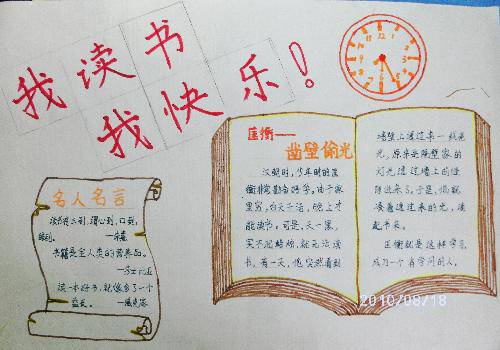 我读书
我快乐！
名人名言
读书有三到，谓心到，口到，
眼到。 —朱熹
书籍是全人类的营养品。
—莎士比亚
读一本好书，就像多了一个
益友。 —臧克家
匡衡——
凿壁偷光
汉朝时，少年时的匡
衡非常勤奋好学，由于家
里穷，白天干活，晚上才
能读书。可是，天一黑，
买不起蜡烛，就无法读
书，有一天，他突然看到
墙壁上透过来一线亮
光，原来是隔壁家的
灯光透过墙上的缝
隙过来了。于是，他就
凑着透过来的光，读
起书来。
匡衡就是这样学习，
成为一个有学问的人。
12
2010/08/18